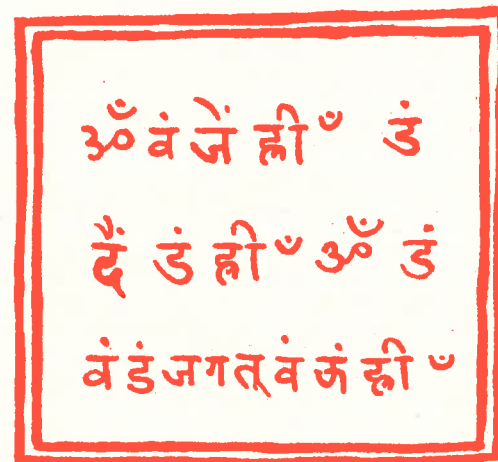 ॐ वं जें ह्लीँ डं
दैं डं ह्लीँ ॐ डं
वं डं जगत् वं ऊं ह्लीँ